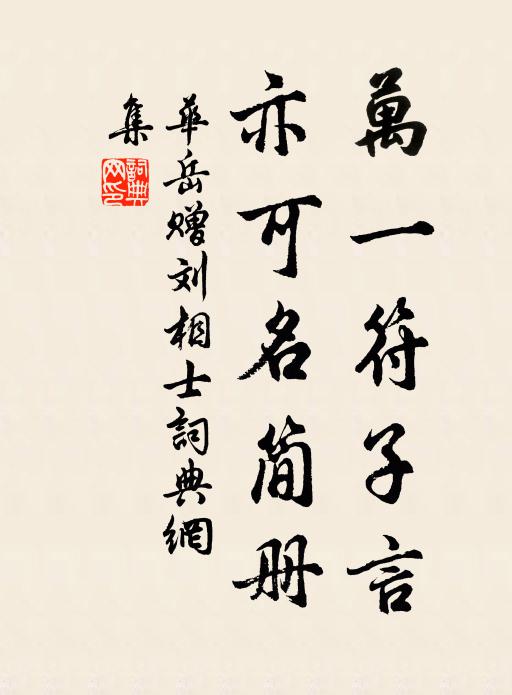 萬一符子言
亦可名简册
華岳赠刘相士詞典網
集
詞典網印